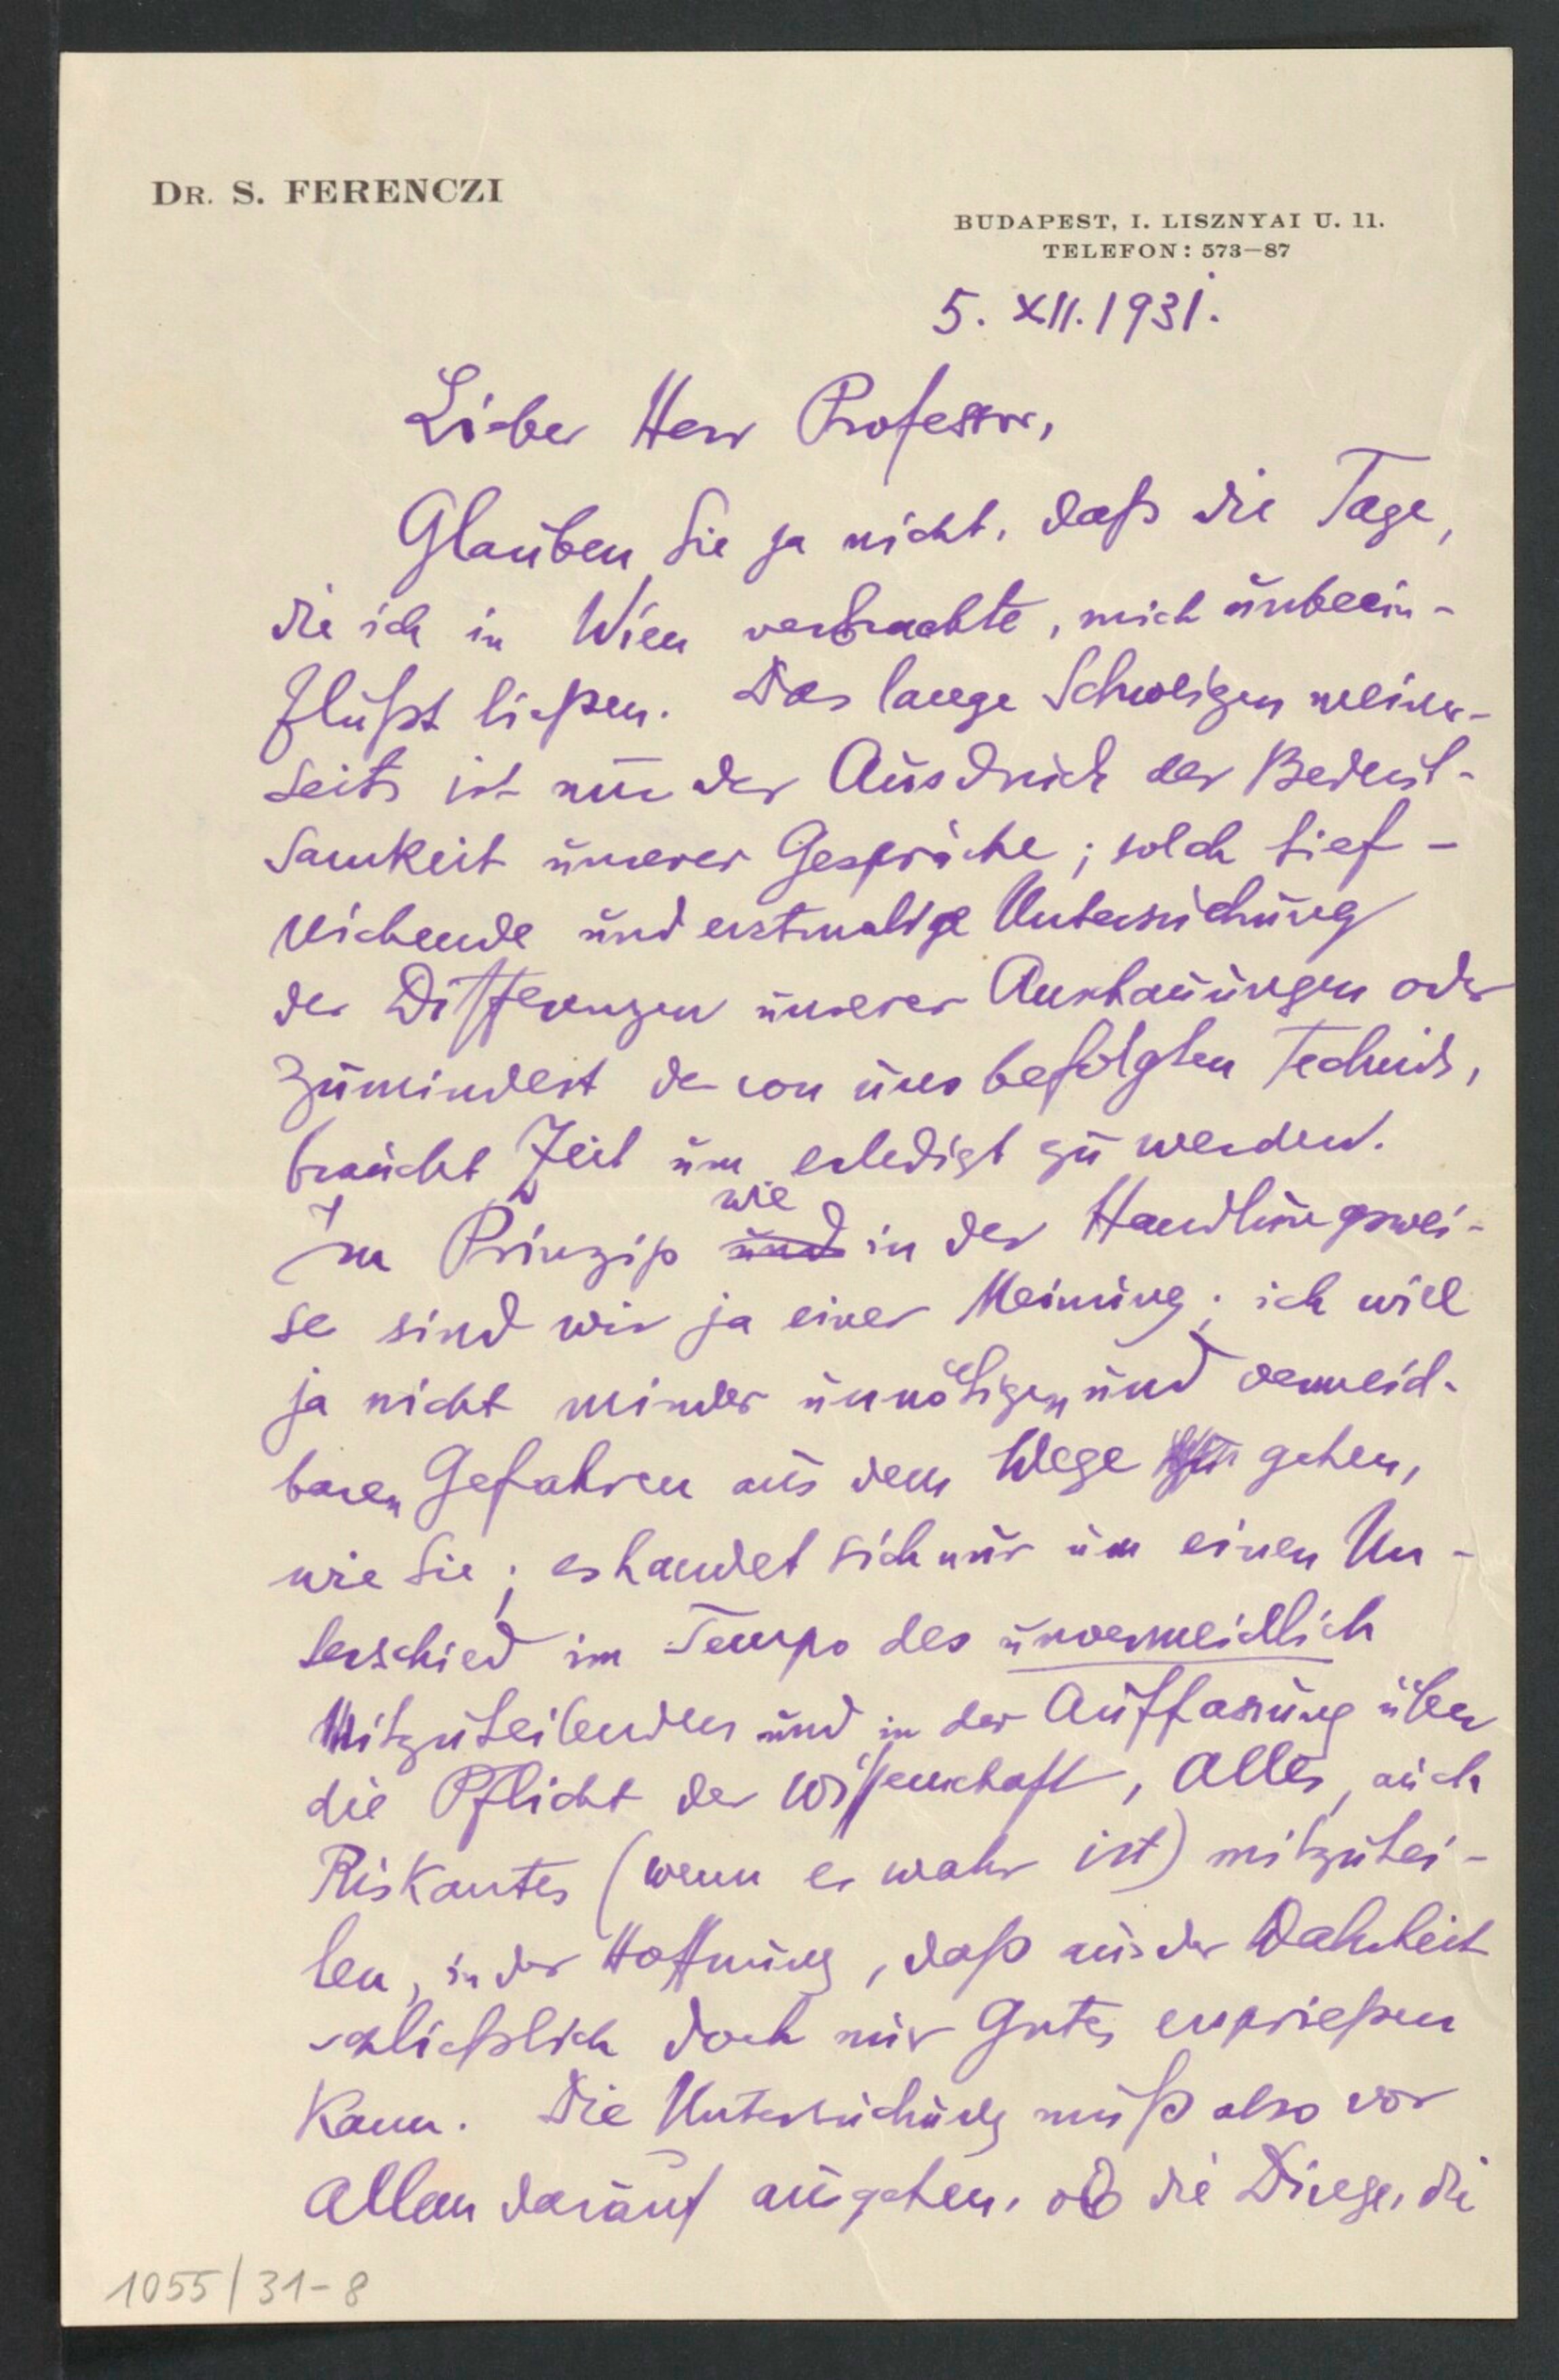 DR. S. FERENCZI
BUDAPEST, I. LISZNYAI U. 11.
TELEFON: 573–87
5. XII. 1931.
Lieber Herr Professor,
Glauben Sie ja nicht, daß die Tage,
die ich in Wien verbrachte, mich unbeein-
flußt ließen. Das lange Schweigen meiner-
seits ist nur der Ausdruck der Bedeut-
samkeit unserer Gespräche; solch tief-
reichende und erstmalige Untersuchung
der Differenzen unserer Anschauungen oder
zumindest der von uns befolgten Technik,
braucht Zeit um erledigt zu werden.
Im Prinzip wie in der Handlungswei-
se sind wir ja einer Meinung; ich will
ja nicht minder unnötigen und vermeid-
baren Gefahren aus dem Wege gehen,
wie Sie; es handelt sich nur um einen Un-
terschied im Tempo des unvermeidlich
Mitzuteilenden und in der Auffassung über
die Pflicht der Wissenschaft, Alles, auch
Riskantes (wenn es wahr ist) mitzutei-
len, in der Hoffnung, daß aus der Wahrheit
schließlich doch nur Gutes ersprießen
kann. Die Untersuchung muß also vor
Allem darauf ausgehen, ob die Dinge, die
1055/31-8